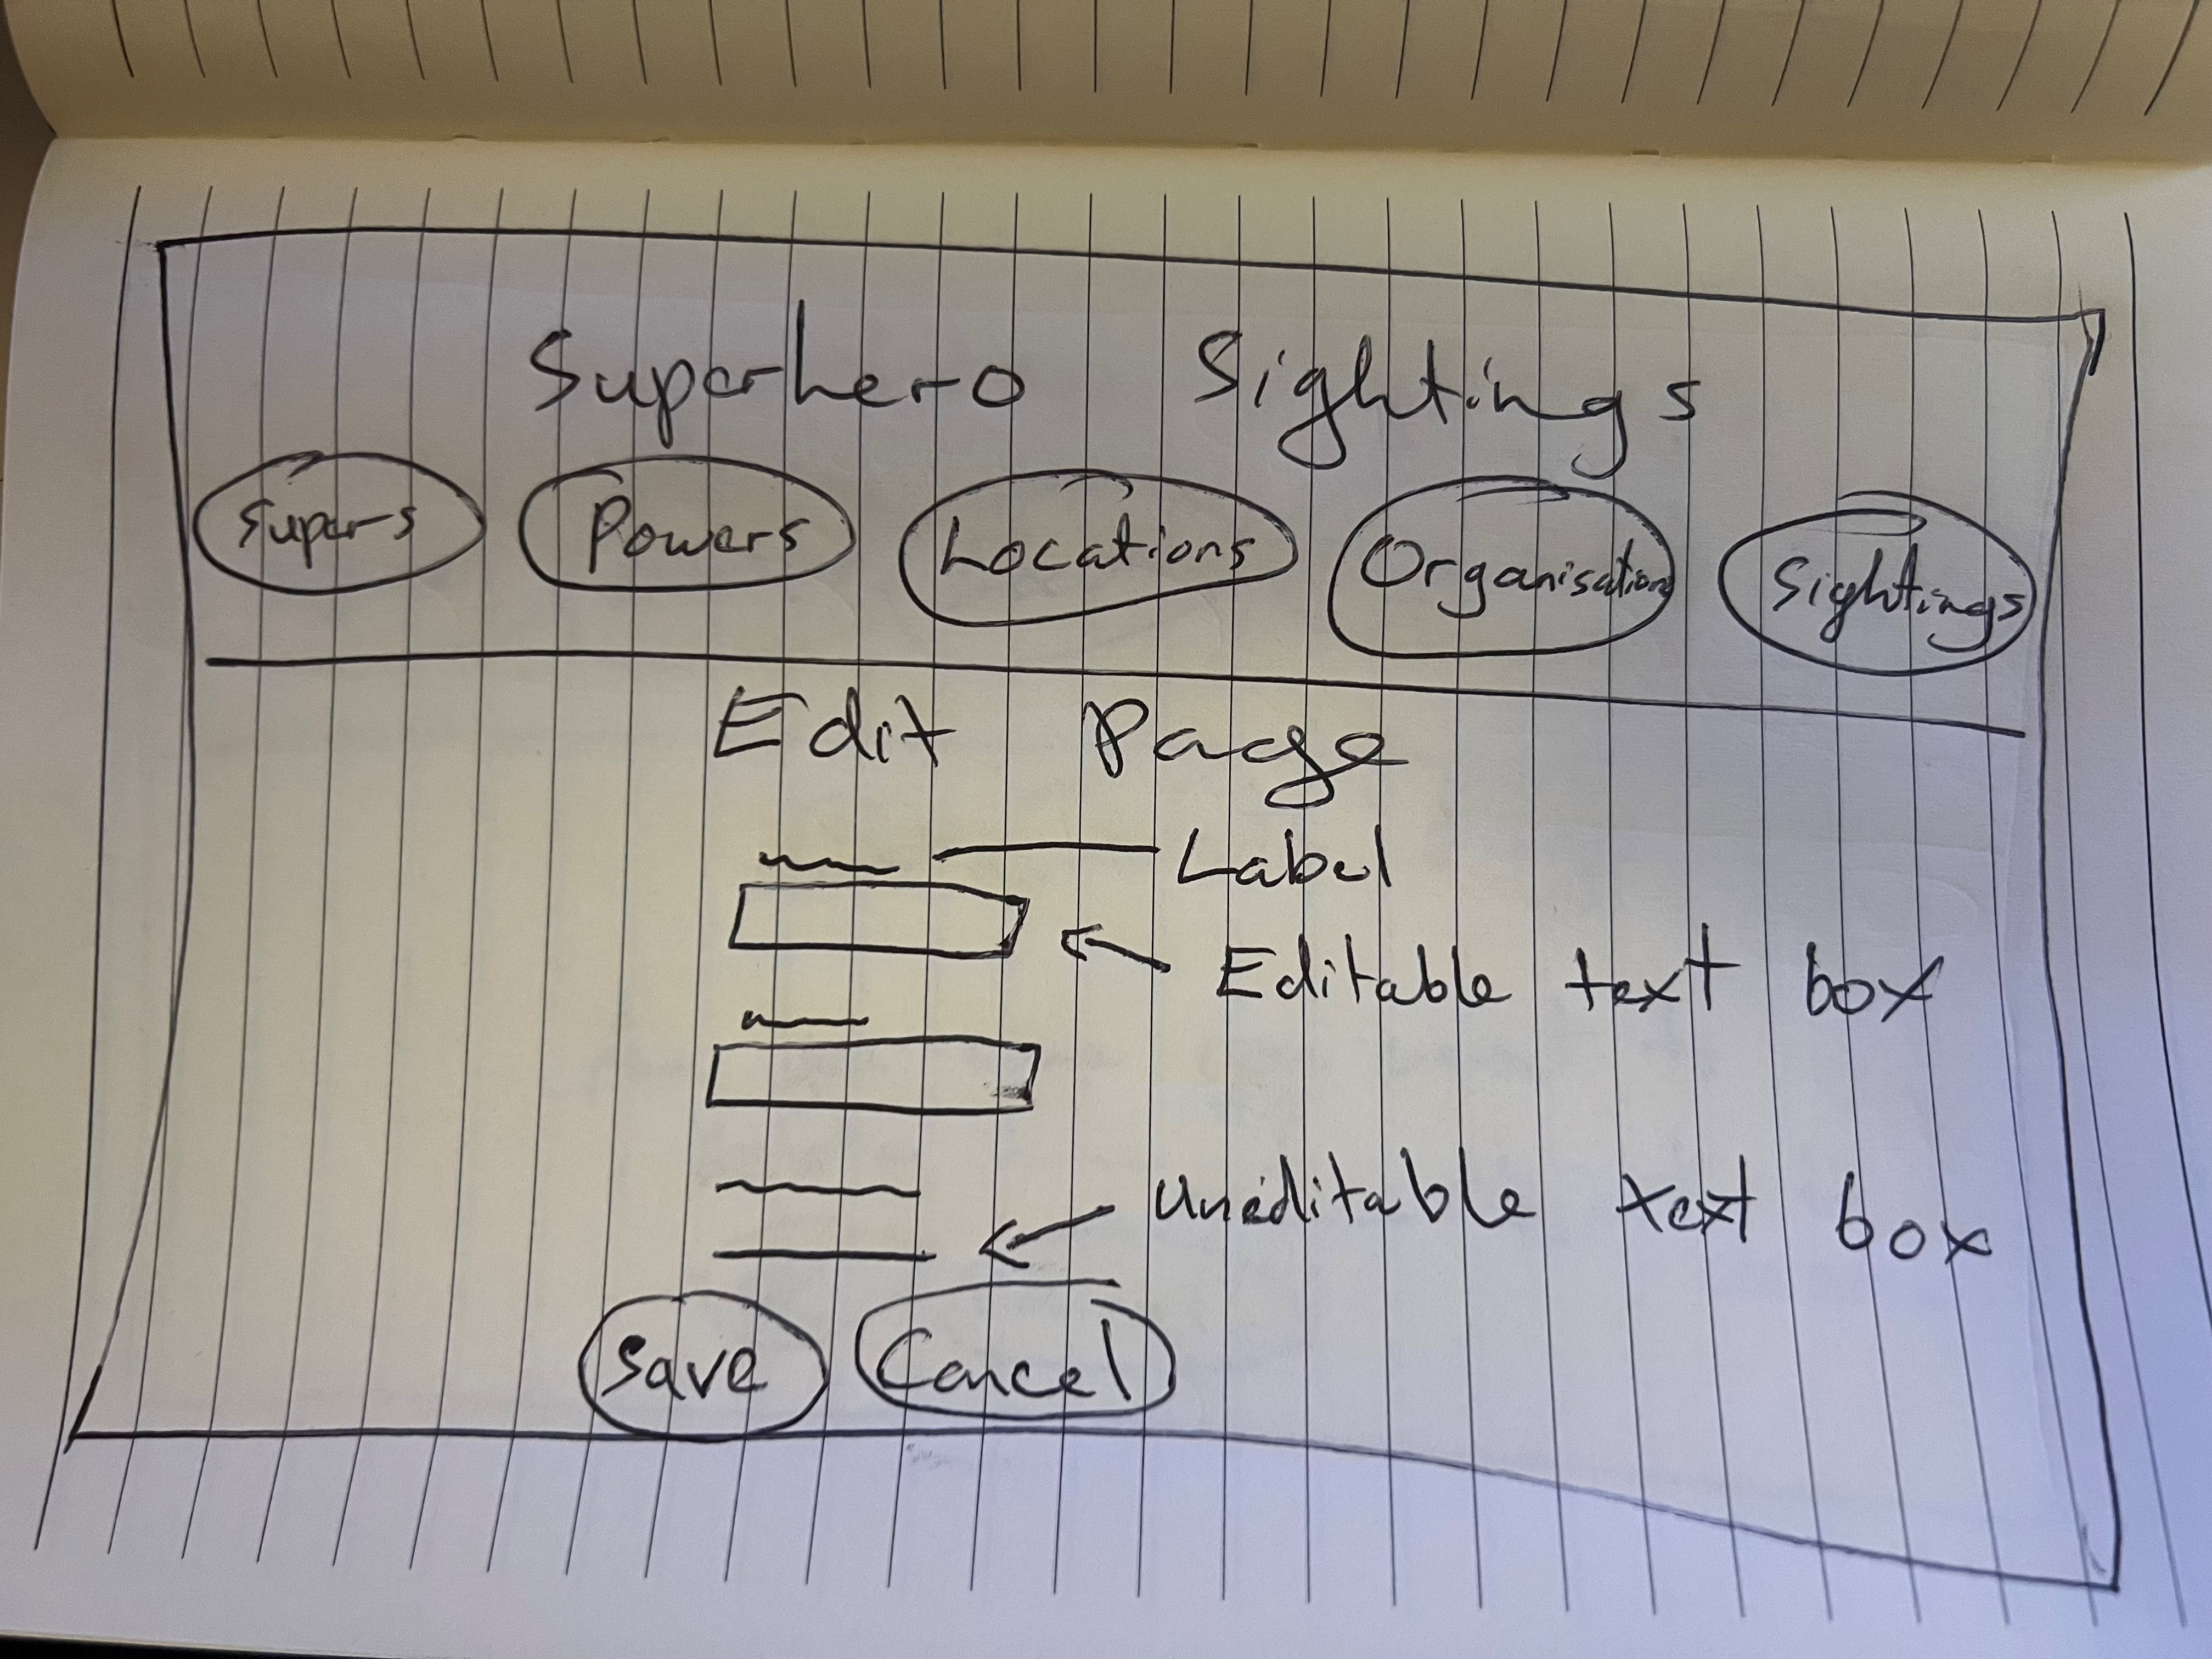 Superhero Sightings
Supers Powers Locations Organisations Sightings
Edit Page
Label
Editable text box
Uneditable text box
Save Cancel